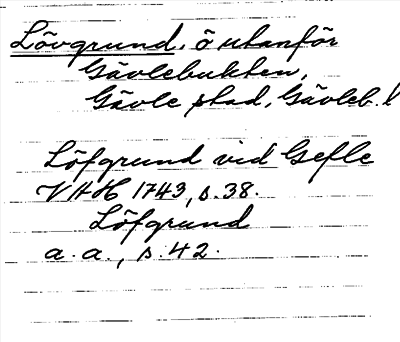 Lövgrund, ö utanför
Gävlebukten,
Gävle stad, Gävleb. l
Löfgrund vid Gefle
VAH 1743, s. 38.
Löfgrund
a. a., s. 42.